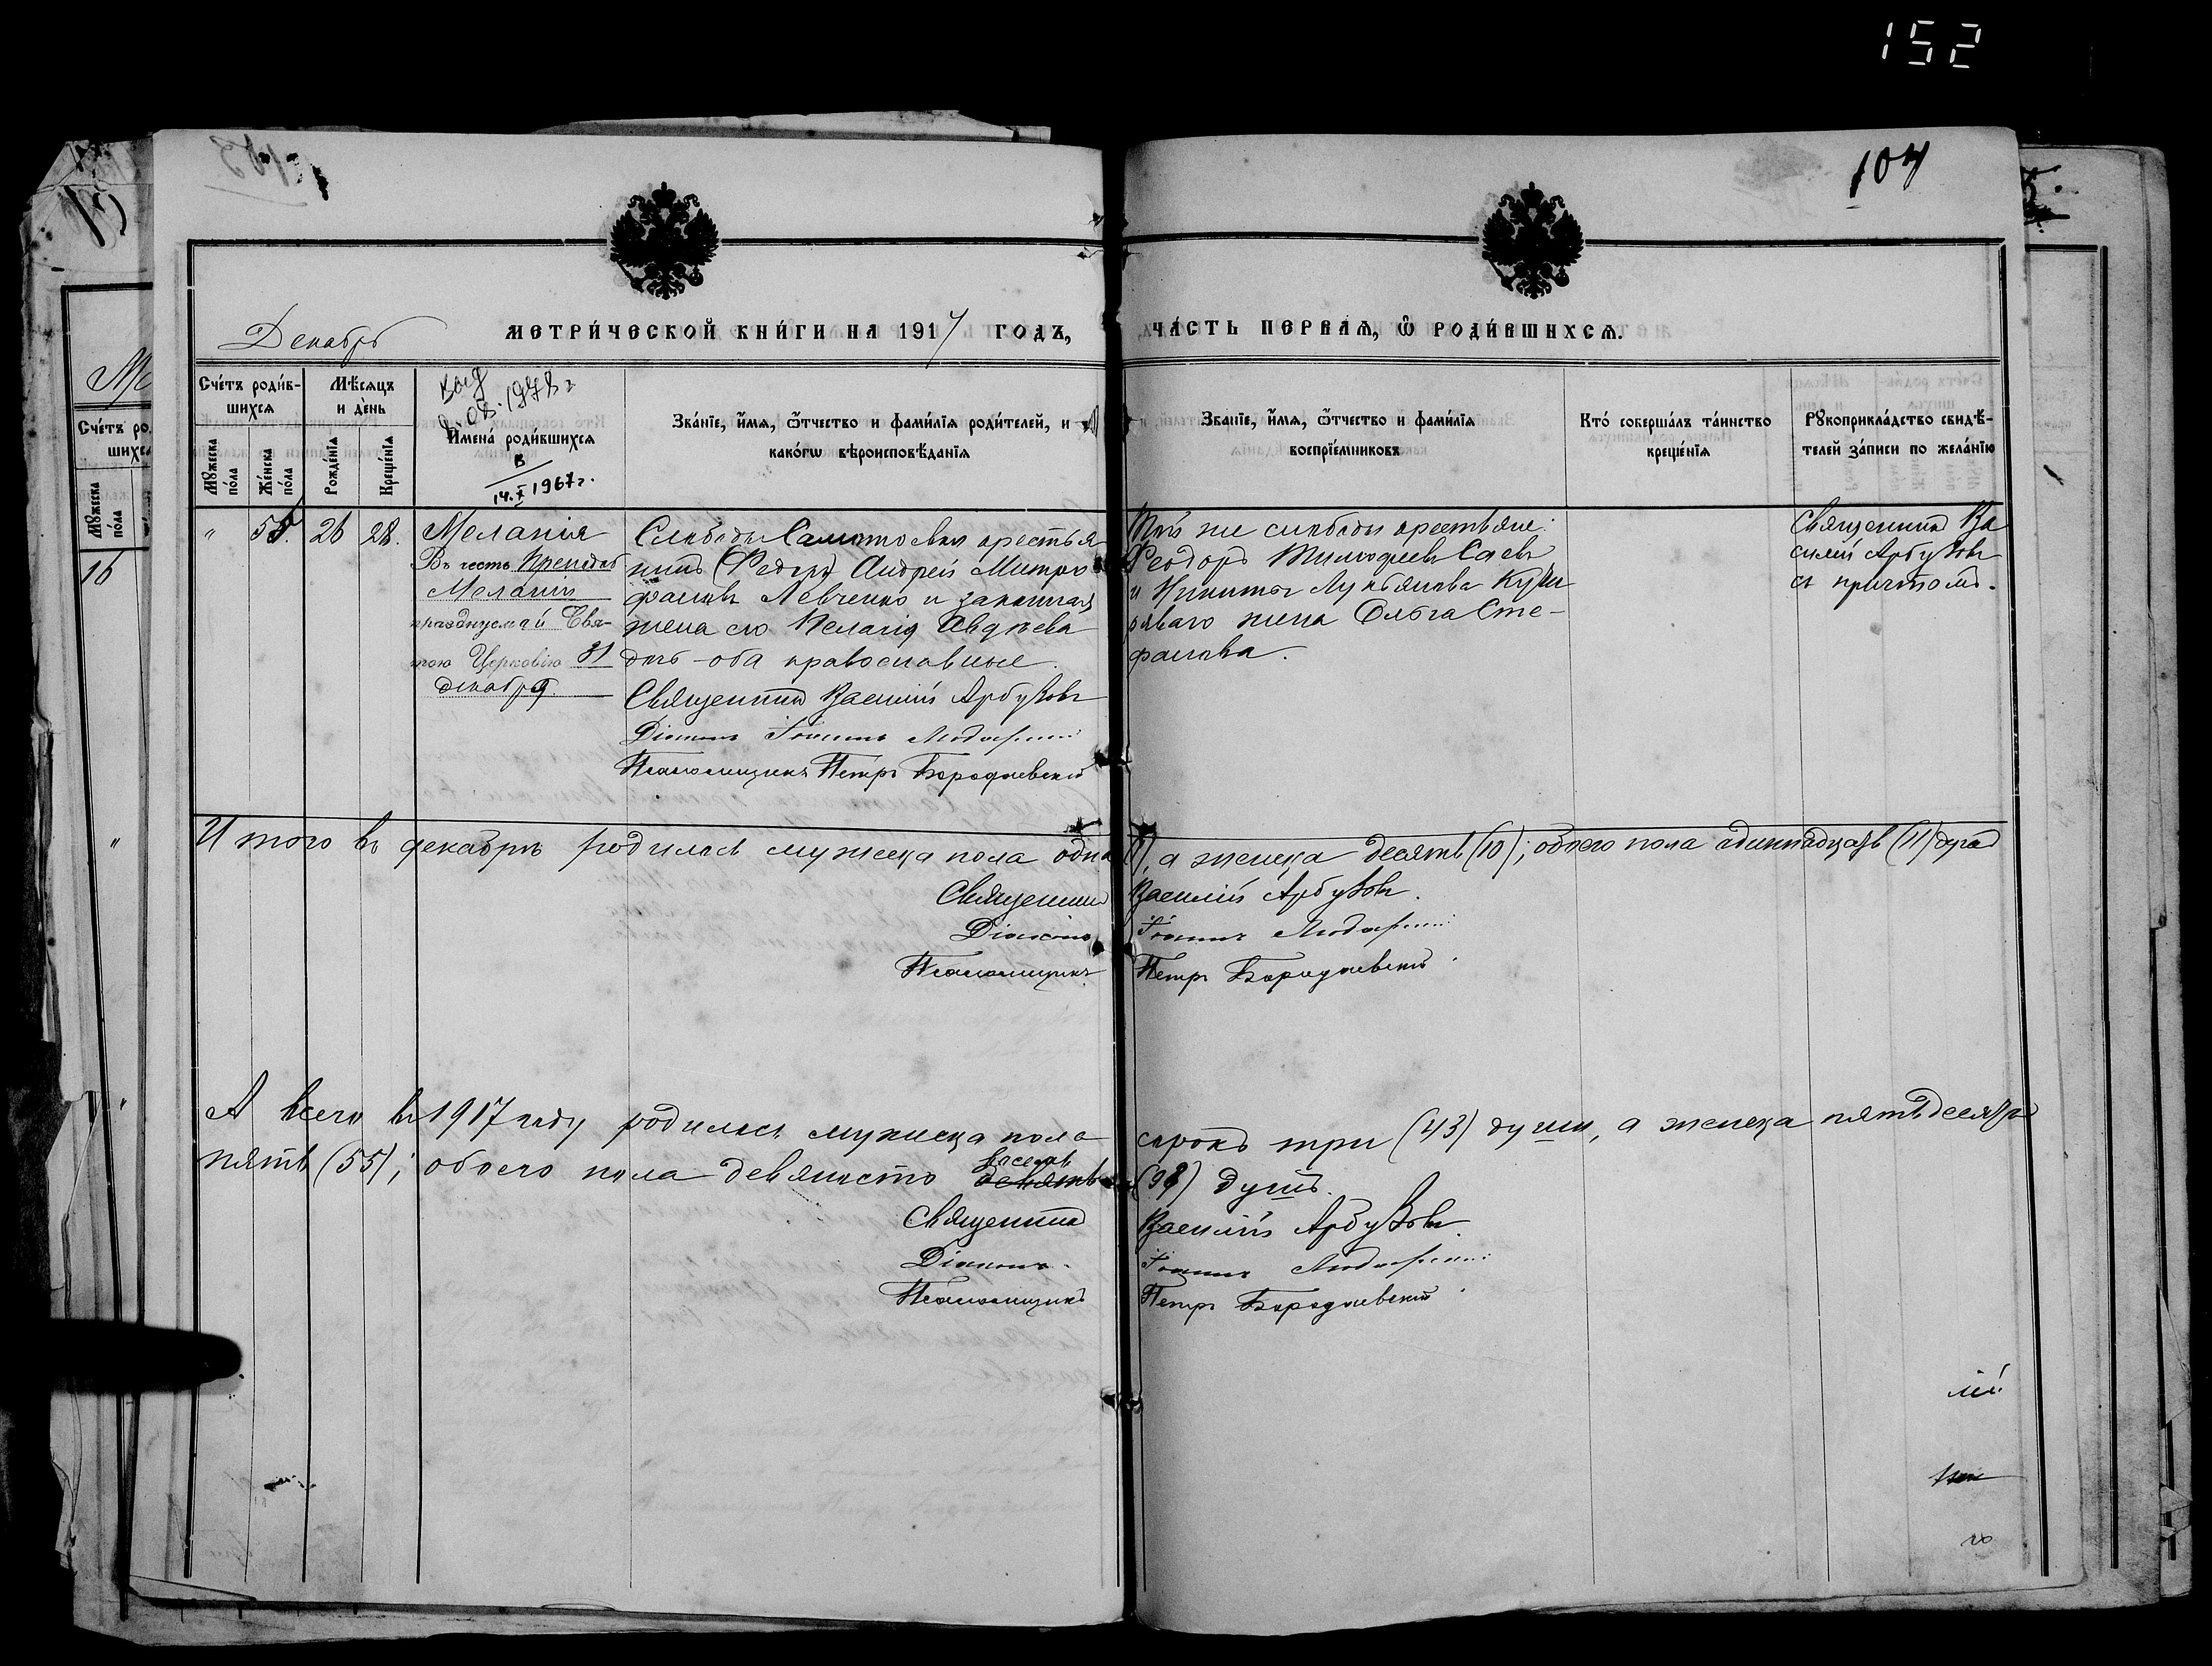 152
104
Декабрь
МЕТРИ́ЧЕСКОЙ КНИ́ГИ НА 1917 ГОДЪ,
ЧА́СТЬ ПЕРВАѦ, Ѡ҆ РОДИ́ВШИХСѦ.
Сче́тъ роди́в-
шихсѧ
Мѣ́сѧцъ
и де́нь
Мꙋ́жеска
по́ла
Же́нска
по́ла
Рожде́нїѧ
Креще́нїѧ
8.08.1978 г
Имена̀ роди́вшихсѧ
в
14.X 1967 г.
Зва́нїе, и҆́мѧ, ѻ҆́тчество и фами́лїѧ роди́телей, и
како́гѡ вѣроисповѣ́данїѧ
Зва́нїе, и҆́мѧ, ѻ҆́тчество и фами́лїѧ
воспрїе́мниковъ
Кто́ соверша́лъ та́инство
креще́нїѧ
Рꙋкоприкла́дство свидѣ́-
телей за́писи по жела́нїю
" 55. 26 28.
Меланія
Въ честь Препод
Меланіи
празднуемой Свя-
тою Церковію 31
декабря
Слободы крестья
нинъ Андрей Митро
фановъ Левченко и законная
жена его Пелагія Авдѣева
оба православные.
Священникъ Василій Арбузовъ
Діаконъ Іоаннъ
Псаломщикъ Петръ Бородаевскій
Той же слободы крестьяне:
Феодоръ Тимофеевъ
и Никиты Лукьянова
жена Ольга Сте-
фанова.
Священникъ Ва
силій Арбузовъ
съ причтомъ.
Итого въ декабрѣ родилось мужеска пола одна
(1), а женска десять (10); обоего пола одиннадцать (11) душъ
Священникъ Василій Арбузовъ.
Діаконъ Іоаннъ
Псаломщикъ Петръ Бородаевскій.
А всего въ 1917 году родилось мужеска пола
сорокъ три (43) души, а женска пятьдесятъ
пять (55); обоего пола девяносто восемь
(98) душъ.
Священникъ Василій Арбузовъ.
Діаконъ Іоаннъ
Псаломщикъ Петръ Бородаевскій.
Сче́тъ ро
шихсѧ
Мꙋ́жеска
по́ла
16